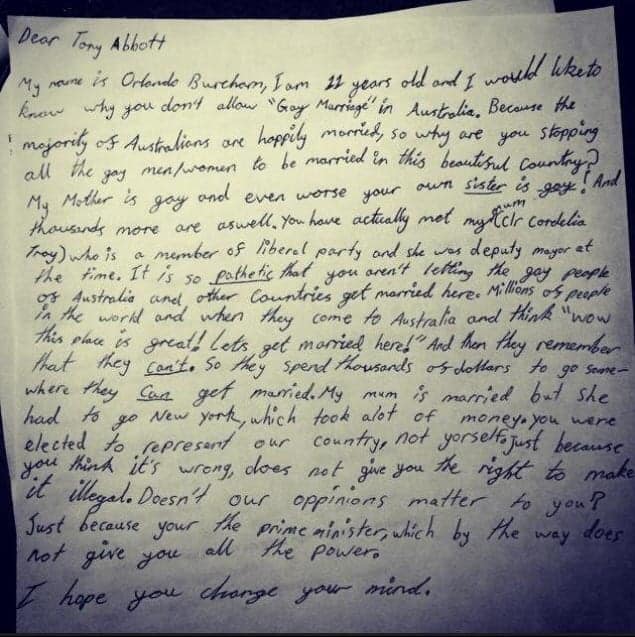 Dear Tony Abbott
My name is Orlando Burcham, I am 11 years old and I would like to
know why you don't allow "Gay Marriage" in Australia. Because the
majority of Australians are happily married, so why are you stopping
all the gay men/women to be married in this beautiful Country?
My Mother is gay and even worse your own sister is gay! And
thousands more are aswell. You have actually met my mum (clr Cordelia
Troy) who is a member of liberal party and she was deputy mayor at
the time. It is so pathetic that you aren't letting the gay people
of Australia and other Countries get married here. Millions of people
in the world and when they come to Australia and think "wow
this place is great! Lets get married here!" And then they remember
that they can't. So they spend thousands of dollars to go some-
where they Can get married. My mum is married but she
had to go New York, which took alot of money. You were
elected to represent our country, not yorself, just because
you think it's wrong, does not give you the right to make
it illegal. Doesn't our oppinions matter to you?
Just because your the prime minister, which by the way does
not give you all the power.
I hope you change your mind.